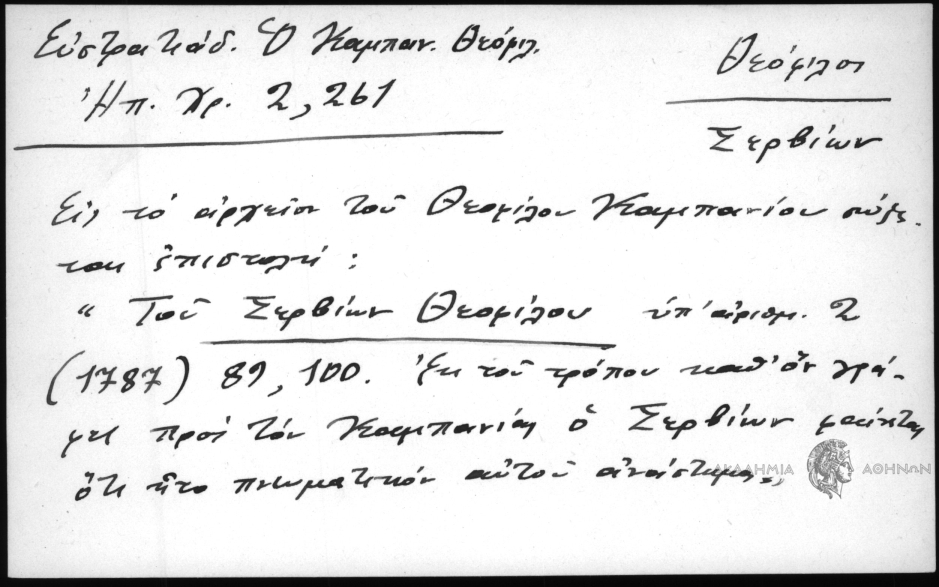 Εὐστρατιάδ. Ὁ Καμπαν. Θεόφιλ.
Ἠπ. Χρ. 2, 261
Θεόφιλος
Σερβίων
Εἰς τὸ ἀρχεῖον τοῦ Θεοφίλου Καμπανίου σώζε-
ται ἐπιστολή:
"Τοῦ Σερβίων Θεοφίλου ὑπ' ἀριθμ. 2
(1787) 89, 100. Ἐκ τοῦ τρόπου καθ' ὃν γρά-
φει πρὸς τὸν Καμπανίας ὁ Σερβίων φαίνεται
ὅτι ἦτο πνευματικὸν αὐτοῦ ἀνάστημα.,,
ΑΚΑΔΗΜΙΑ ΑΘΗΝΩΝ